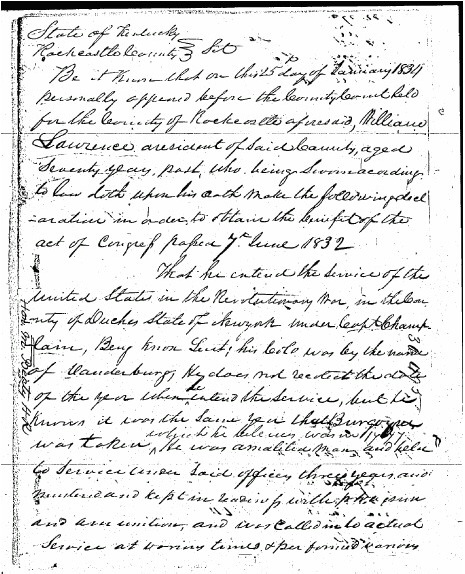 State of Kentucky
Rockcastle County } Sct
Be it known that on this 25 day of January 1834
Personally appeared before the County Court held
for the County of Rockcastle aforesaid, William
Lawrence a resident of said County, aged
Seventy years, past, who being Sworn acording
to law doth upon his oath make the following decl
-aration in order to obtain the benefit of the
act of Congress passed 7th June 1832
That he entend the service of the
united States in the Revolutionary War in the Cou
nty of Duches State of Newyork under Capt Cham
lain, Beng Knon Liut; his Colo was by the name
of Vanderburg, He does not recolect the date
of the year when he entend the service, but he
knows it was the same year that Burgoyne
was taken which he beleives was in 1777
He was a malitia man, and held
to service under said officers three years, and
mustered and kept in readiness with
and amunition, and was called in to actual
Service at varios times & performed varios